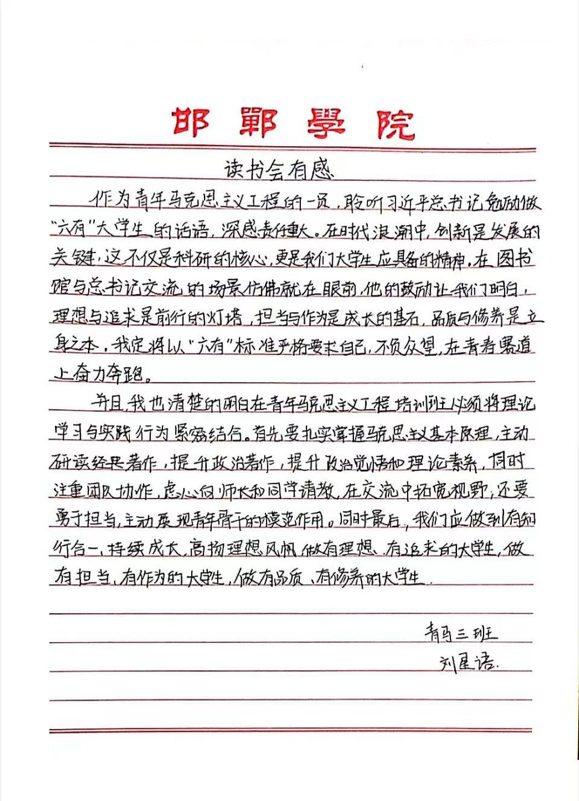 邯鄲學院
读书会有感
作为青年马克思主义工程的一员，聆听习近平总书记勉励做
“六有”大学生的话语，深感责任重大。在时代浪潮中，创新是发展的
关键，这不仅是科研的核心，更是我们大学生应具备的精神。在图书
馆与总书记交流的场景仿佛就在眼前，他的鼓励让我们明白，
理想与追求是前行的灯塔，担当与作为是成长的基石，品质与修养是立
身之本。我定将以“六有”标准严格要求自己，不负众望，在青春赛道
上奋力奔跑。
并且，我也清楚的明白在青年马克思主义工程培训班必须将理论
学习与实践行为紧密结合。首先要扎实掌握马克思主义基本原理，主动
研读经典著作，提升政治著作，提升政治觉悟和理论素养，同时
注重团队协作，虚心向师长和同学请教，在交流中拓宽视野，还要
勇于担当，主动展现青年骨干的模范作用。同时最后，我们应做到有知
行合一，持续成长，高扬理想风帆，做有理想、有追求的大学生，做
有担当、有作为的大学生，做有品质、有修养的大学生．
青马三班
刘星语．